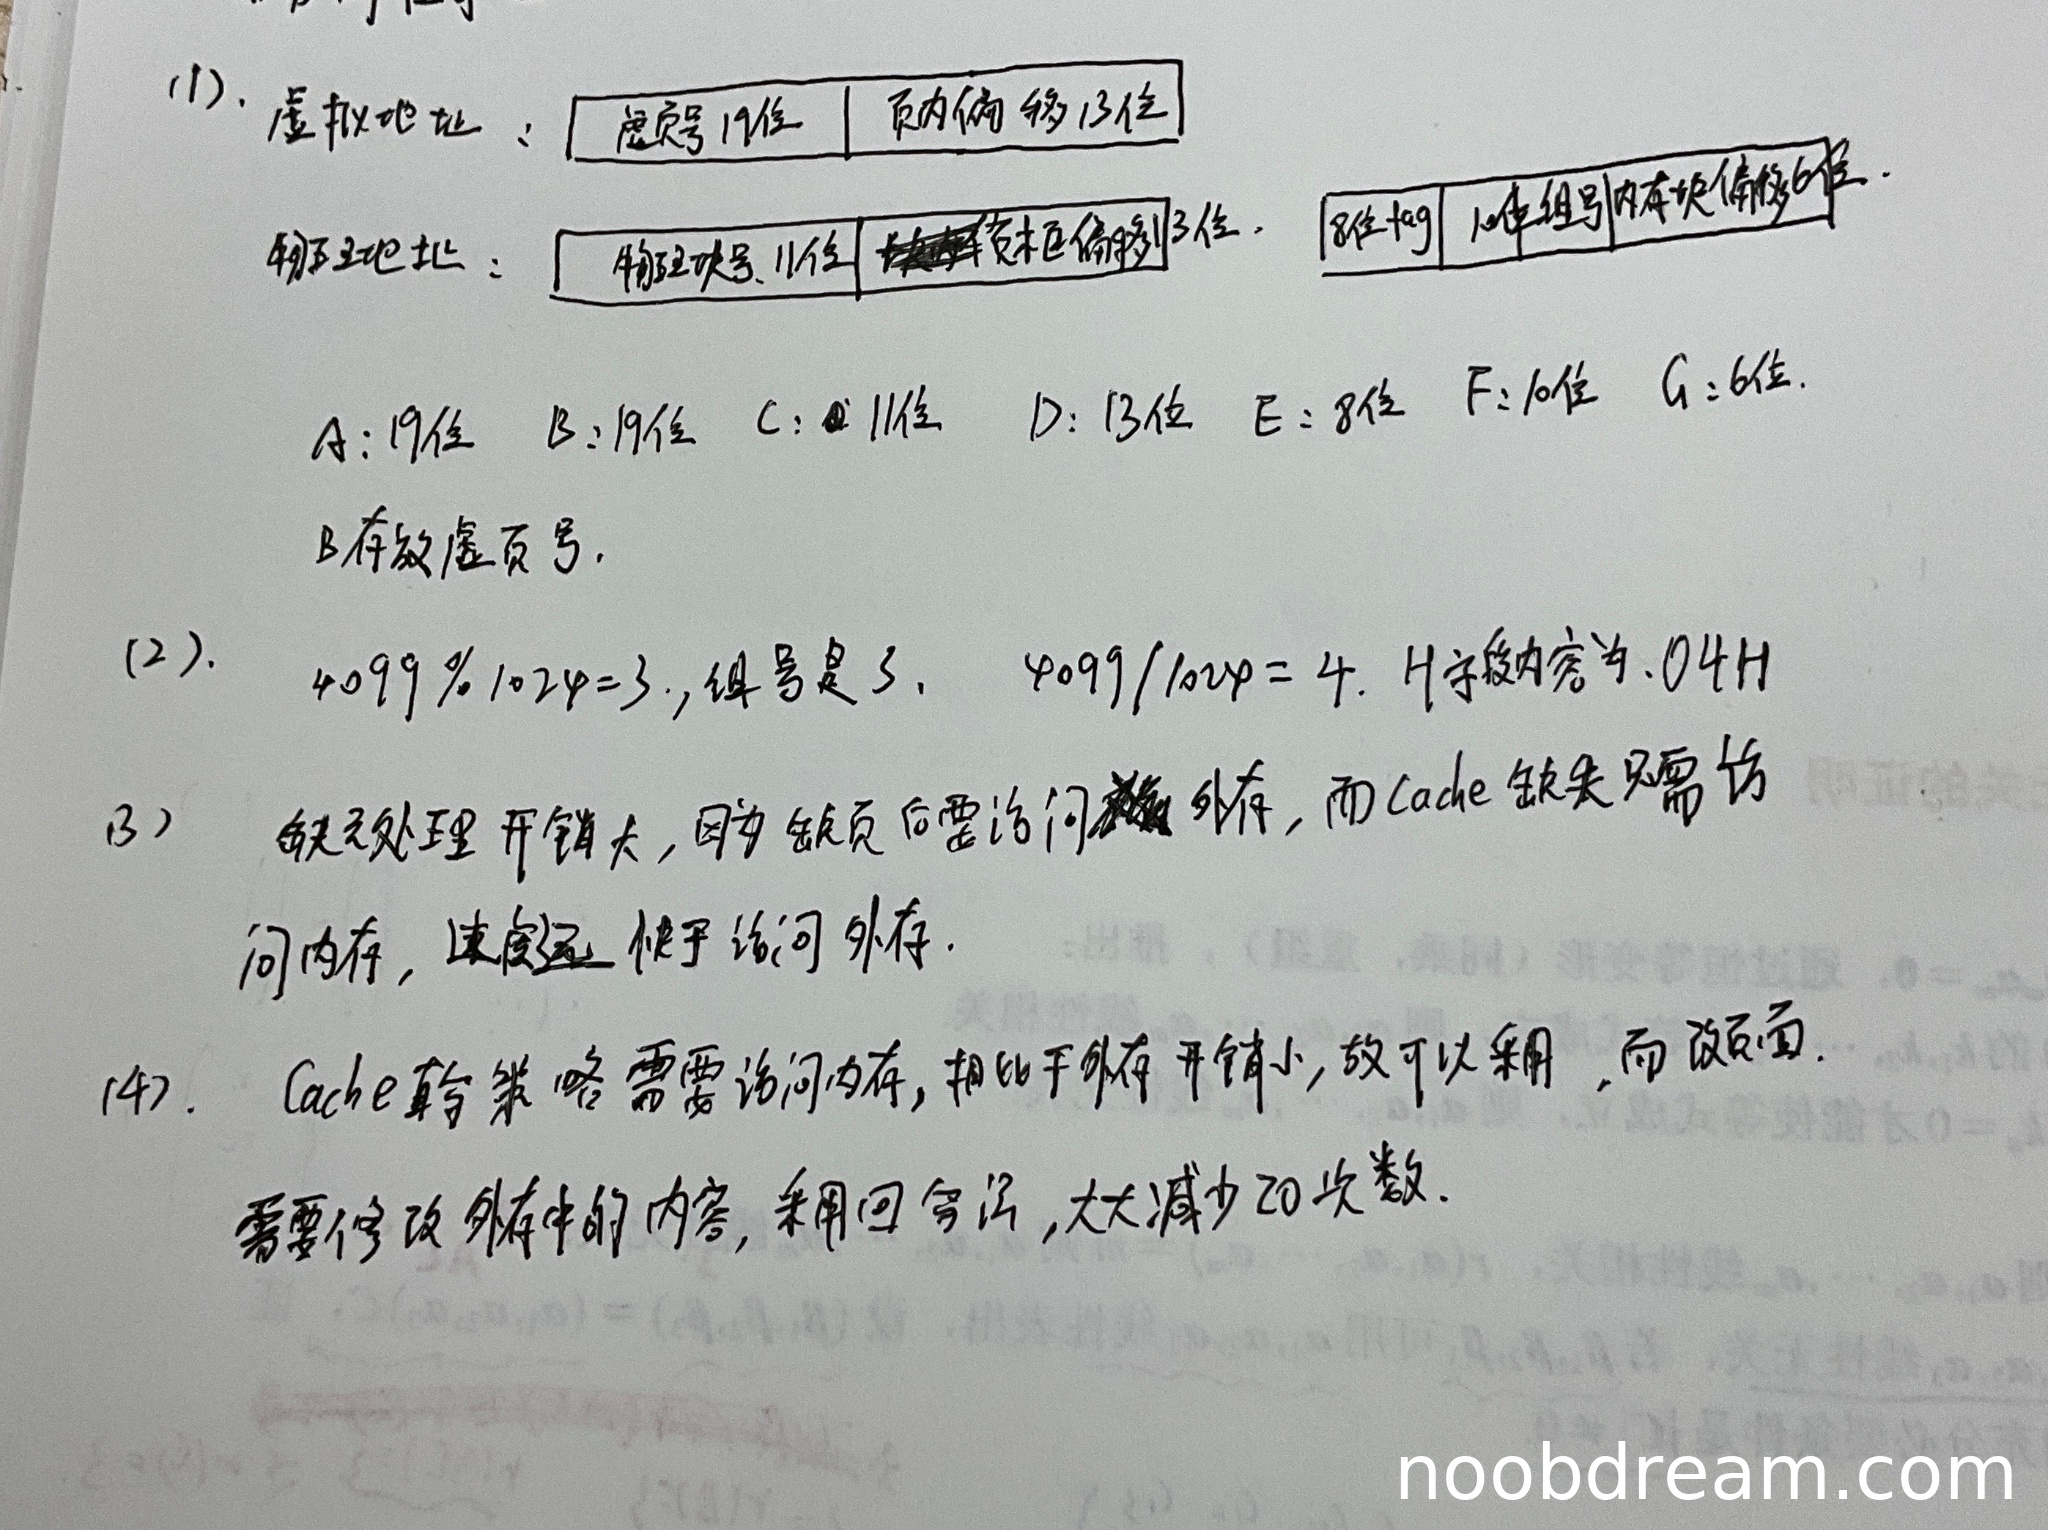 (1). 虚拟地址: 虚页号19位 页内偏移13位
物理地址: 物理块号11位 页框偏移13位. 8位tag 10位组号 内存块偏移6位.
A:19位 B:19位 C:11位 D:13位 E:8位 F:10位 G:6位.
B存放虚页号.
(2). 4099%1024=3., 组号是3. 4099/1024=4. H字段内容为.04H
(3) 缺页处理开销大,因为缺页后要访问外存,而Cache缺失只需访
问内存,速度远快于访问外存.
(4). Cache直写策略需要访问内存,相比于外存开销小,故可以采用,而改页面.
需要修改外存中的内容,采用回写法,大大减少IO次数.
关的证明
=0, 通过恒等变形(同乘,重组),推出:
=0才能使等式成立,则
noobdream.com